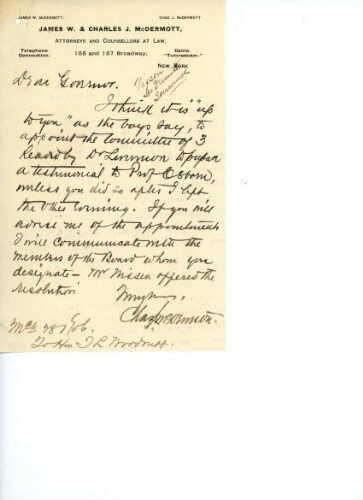 JAMES W. McDERMOTT. CHAS J. McDERMOTT
JAMES W. & CHARLES J. McDERMOTT,
ATTORNEYS AND COUNSELLORS AT LAW,
Telephone Connection. 155 and 157 Broadway. Cable.
NEW YORK
Dear Governor.
I think it is "up
to you" as the boys say, to
appoint the committee of 3
by Dr to
a testimonial to Prof Osborn,
unless you did so after I left
the other evening. If you will
advise me of the appointments
I will communicate with the
members of the Board whom you
designate – Mr Nissen offered the
resolution
Mch 28/06.
To Hon. T L Woodruff.